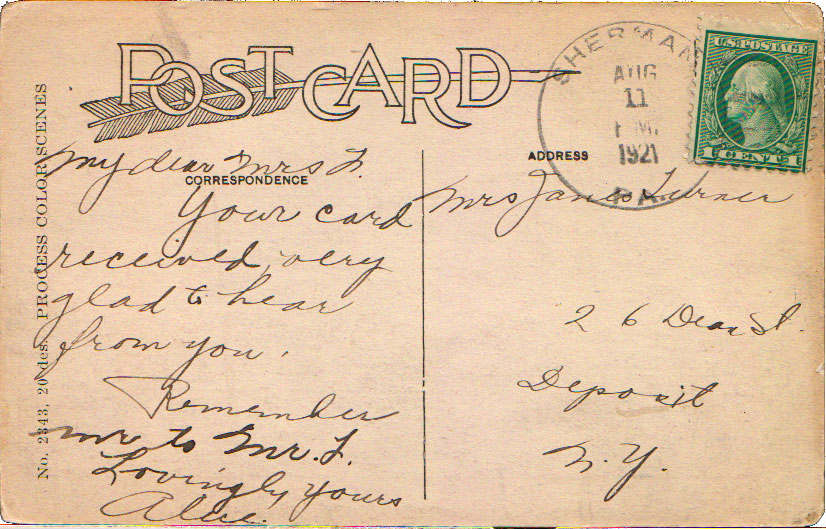 POST CARD
SHERMAN
AUG
11
P M.
1921
PA.
U.S. POSTAGE
1 CENT 1
CORRESPONDENCE
ADDRESS
No. 2343, 20 des. PROCESS COLOR SCENES
My dear Mrs T.
Your card
received, very
glad to hear
from you.
Remember
me to Mr. T.
Lovingly yours
Alice.
Mrs James Turner
26 Dean St.
Deposit
N.Y.